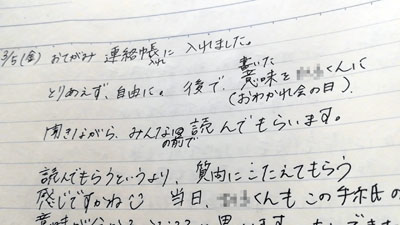 3/5(金) おてがみ 連絡帳に 入れました。
とりあえず、自由に。後で、書いた意味を くんに
(おわかれ会の日)
聞きながら、みんなの前で読んでもらいます。
読んでもらうというより、質問にこたえてもらう
感じですかね 当日、 くんもこの手紙の